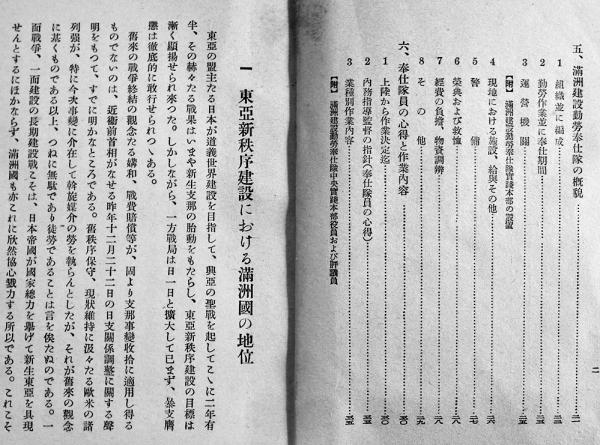 五、滿洲建設勤勞奉仕隊の概貌
1 組織並に編成
2 勤勞作業並に奉仕期間
3 運營機關
【附】滿洲建設勤勞奉仕隊實踐本部の設置
4 現地における施設、給與その他
5 警備
6 榮典および救恤
7 經費の負擔、物資調辨
8 その他
六、奉仕隊員の心得と作業內容
1 上陸から作業決定迄
2 內務指導監督の指針(奉仕隊員の心得)
3 業種別作業內容
【附】滿洲建設勤勞奉仕隊中央實踐本部役員および評議員
二
一 東亞新秩序建設における滿洲國の地位
東亞の盟主たる日本が道義世界建設を目指して、興亞の聖戰を起してこゝに二年有
半、その赫々たる戰果はいまや新生支那の胎動をもたらし、東亞新秩序建設の目標は
漸く顯揚せられ來つた。しかしながら、一方戰局は日一日と擴大して已まず、暴支膺
懲は徹底的に敢行せられつゝある。
舊來の戰爭終結の觀念たる媾和、戰費賠償等が、固より支那事變收拾に適用し得る
ものでないのは、近衞前首相がなせる昨年十二月二十二日の日支關係調整に關する聲
明をもつて、すでに明かなところである。舊秩序保守、現狀維持に汲々たる歐米の諸
列强が、特に今次事變に介在して斡旋媒介の勞を執らんとしたが、それが舊來の觀念
に基くものである以上、つねに無駄であり徒勞であることは言を俟たぬのである。一
面戰爭、一面建設の長期建設戰こそは、日本帝國が國家總力を擧げて新生東亞を具現
せんとするにほかならず、滿洲國も亦これに欣然協心戮力する所以である。これこそ